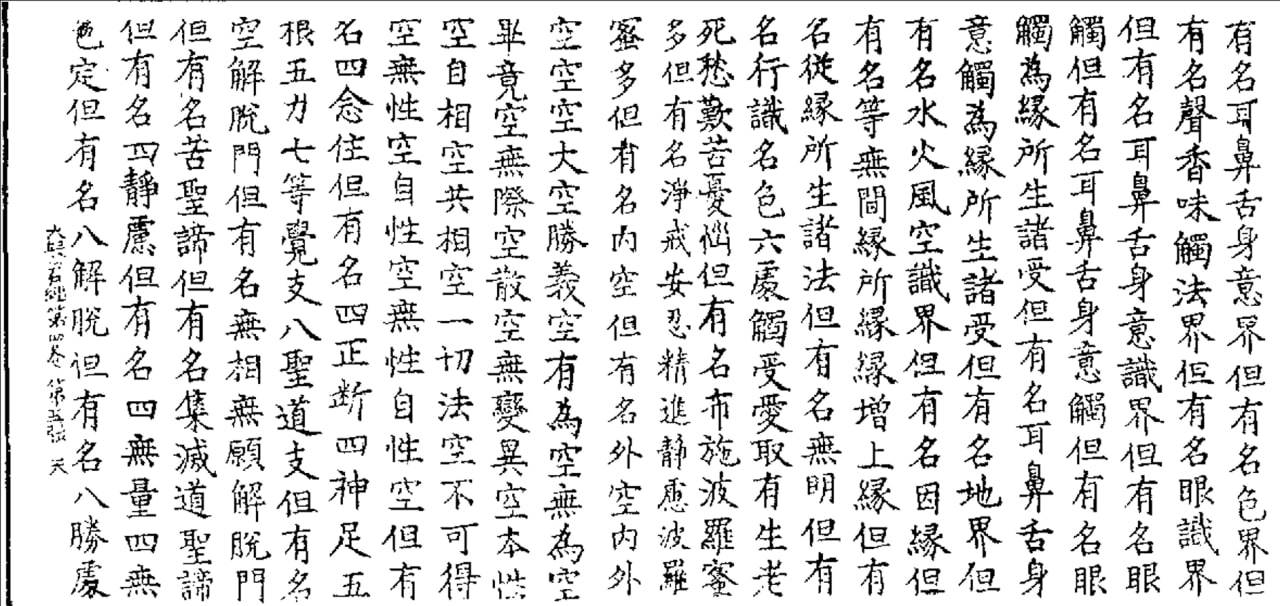 有名耳鼻舌身意界但有名色界但
有名聲香味觸法界但有名眼識界
但有名耳鼻舌身意識界但有名眼
觸但有名耳鼻舌身意觸但有名眼
觸為緣所生諸受但有名耳鼻舌身
意觸為緣所生諸受但有名地界但
有名水火風空識界但有名因緣但
有名等無間緣所緣緣增上緣但有
名從緣所生諸法但有名無明但有
名行識名色六處觸受愛取有生老
死愁歎苦憂惱但有名布施波羅蜜
多但有名淨戒安忍精進靜慮波羅
蜜多但有名內空但有名外空內外
空空空大空勝義空有為空無為空
畢竟空無際空散空無變異空本性
空自相空共相空一切法空不可得
空無性空自性空無性自性空但有
名四念住但有名四正断四神足五
根五力七等覺支八聖道支但有名
空解脫門但有名無相無願解脫門
但有名苦聖諦但有名集滅道聖諦
但有名四靜慮但有名四無量四無
色定但有名八解脫但有名八勝處
大般若經第四卷 第五張 天